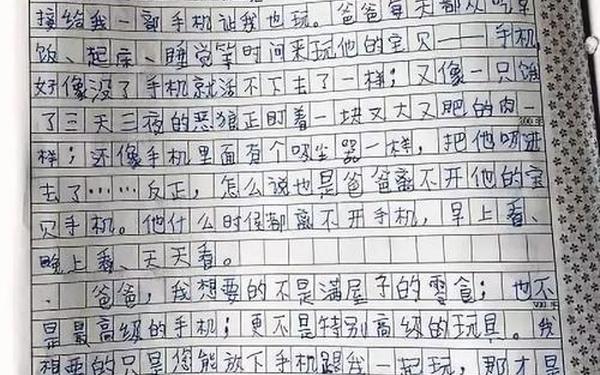 接给我一部手机让我也玩。爸爸每天都从吃早
饭、起床、睡觉等时间来玩他的宝贝——手机,
好像没了手机就活不下去了一样;又像一只饿
了三天三夜的恶狼正盯着一块又大又肥的肉一
300字
样;还像手机里面有个吸尘器一样,把他吸进
去了……反正,怎么说也是爸爸离不开他的宝
贝手机。他什么时候都离不开手机,早上看、
晚上看、天天看。
爸爸,我想要的不是满屋子的零食;也不
是最高级的手机;更不是特别高级的玩具。我
想要的只是您能放下手机跟我一起玩,那才是